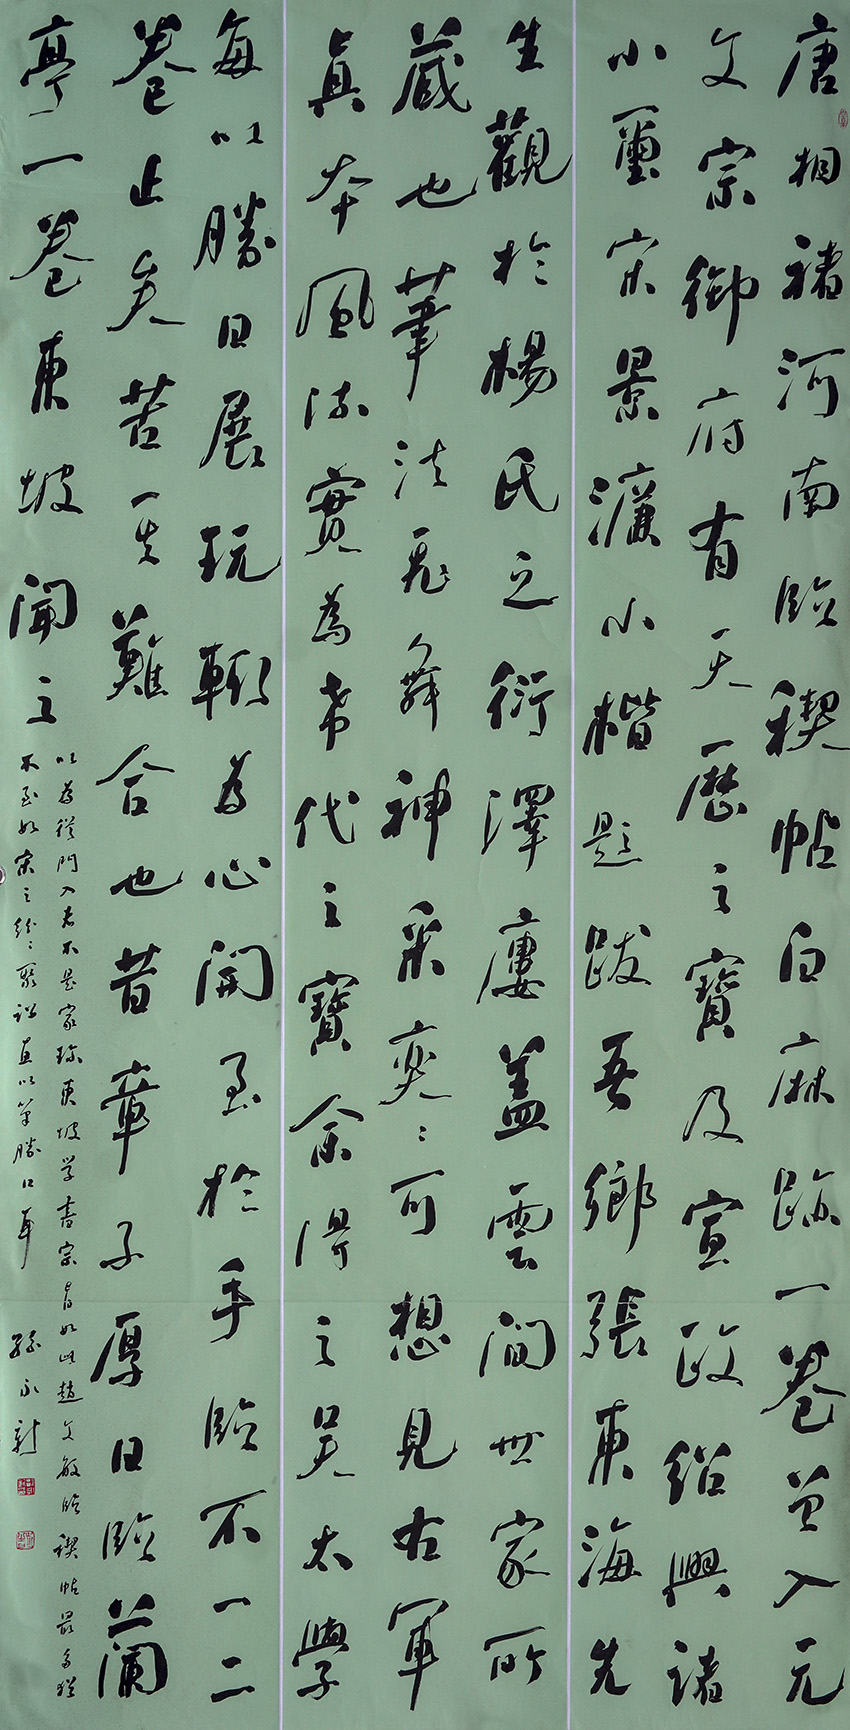 唐相褚河南临禊帖白麻跡一卷曾入元
文宗御府有天曆之寶及宣政紹興諸
小璽宋景濂小楷題跋吾鄉張東海先
生觀於楊氏之衍澤廔蓋雲間世家所
藏也筆法飛舞神采奕奕可想見右軍
真本風流實為希代之寶余得之吴太學
每以勝日展玩輒為心開至於手临不一二
卷止矣苦其難合也昔章子厚日临蘭
亭一卷東坡聞之
以為從門入者不是家珍東坡学書宗旨如此趙文敏临禊帖最多猶
不至如宋之紛紛聚訟直以筆勝口耳
孫永新